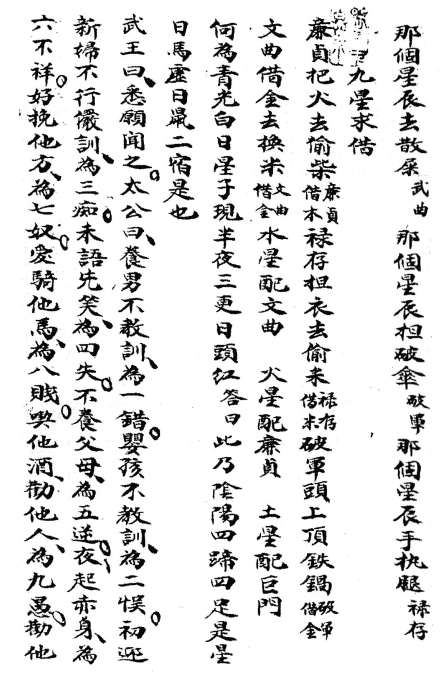 那個星辰去散屎武曲 那個星辰担破傘破軍 那個星辰手执腿祿存
九星求借
廉貞把火去偷柴廉貞借木祿存担衣去偷米祿存借米破軍頭上頂鉄鍋破軍借金
文曲借金去換米文曲借金水星配文曲 火星配廉貞 土星配巨門
何為青光白日星子現半夜三更日頭紅答曰此乃陰陽四蹄四足是星
日馬虛日鼠二宿是也
武王曰、悉願聞之。太公曰、養男不教訓、為一錯。嬰孩不教訓、為二悮。初迎
新婦不行儼訓、為三痴。未語先笑、為四失。不養父母、為五逆。夜起赤身、為
六不祥。好挽他方、為七奴。愛騎他馬、為八賤。喫他酒、勸他人、為九愚。勸他